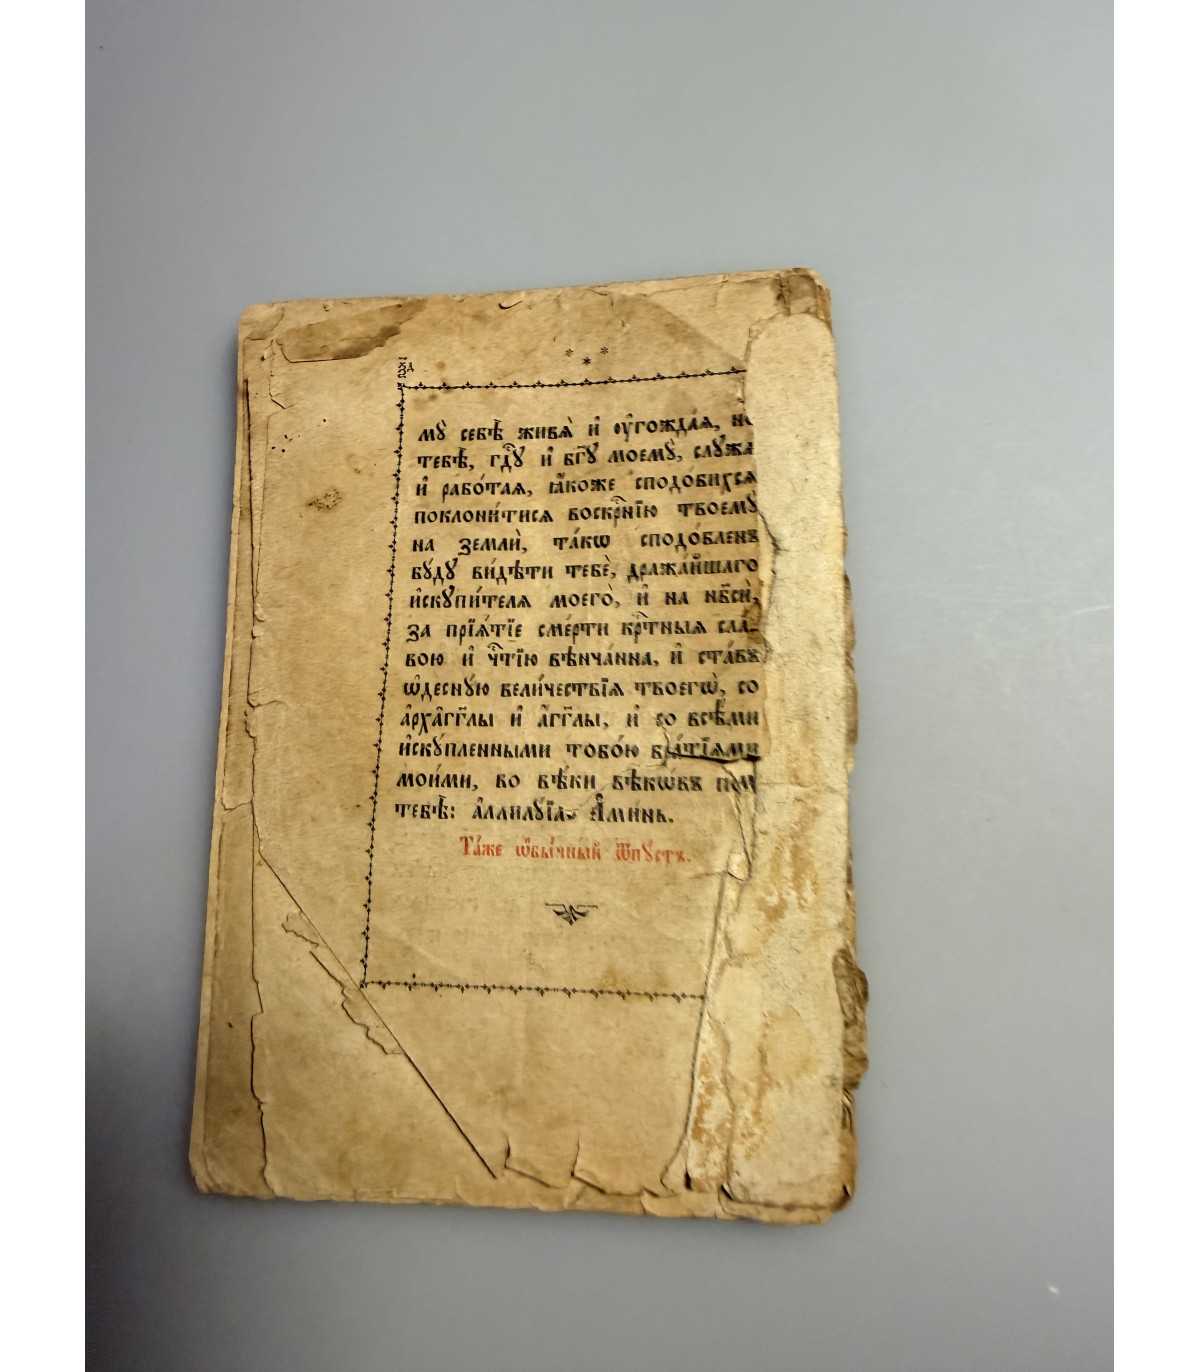 * * *
мꙋ̀ себѣ̀ живѧ̀ и҆ ᲂу҆гождаѧ,
тебѣ̀, гдⷭ҇ꙋ и҆ бг҃ꙋ моемꙋ̀, слꙋжа
и҆ рабо́таѧ, ꙗ҆́коже сподо́бихсѧ
поклони́тисѧ воскрⷭ҇нїю твоемꙋ̀
на землѝ, та́кѡ сподо́бленъ
бꙋ́дꙋ ви́дѣти тебѐ, дража́йшаго
и҆скꙋпи́телѧ моего̀, и҆ на нб҃сѝ,
за прїѧ́тїе сме́рти крⷭ҇тныѧ сла́-
вою и҆ чⷭ҇тїю вѣнча́нна, и҆ ста́въ
ѡ҆деснꙋ́ю вели́чествїѧ твоегѡ̀, со
а҆рха́гг҃лы и҆ а҆́гг҃лы, и҆ со всѣ́ми
и҆скꙋ́пленными тобо́ю бра́тїѧми
мои́ми, во вѣ́ки вѣкѡ́въ
тебѣ̀: а҆ллилꙋ́їа. А҆ми́нь.
Та́же ѡ҆бы́чный ѿпꙋ́стъ.